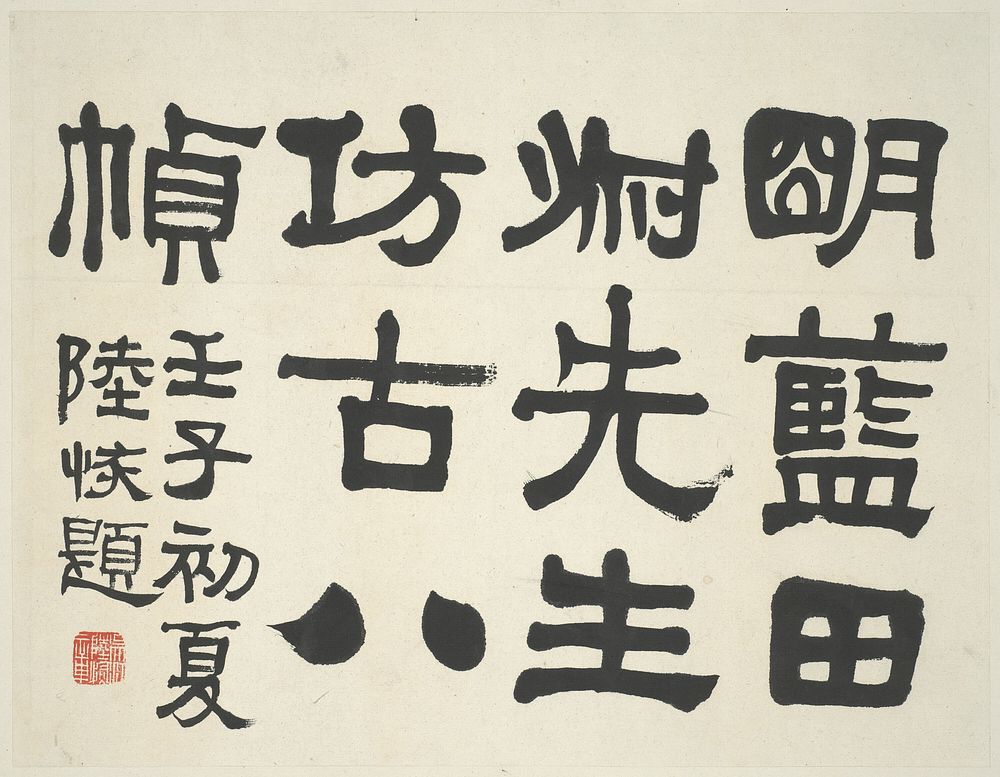 朙藍田
叔先生
仿古八
幀
壬子初夏
陸恢題